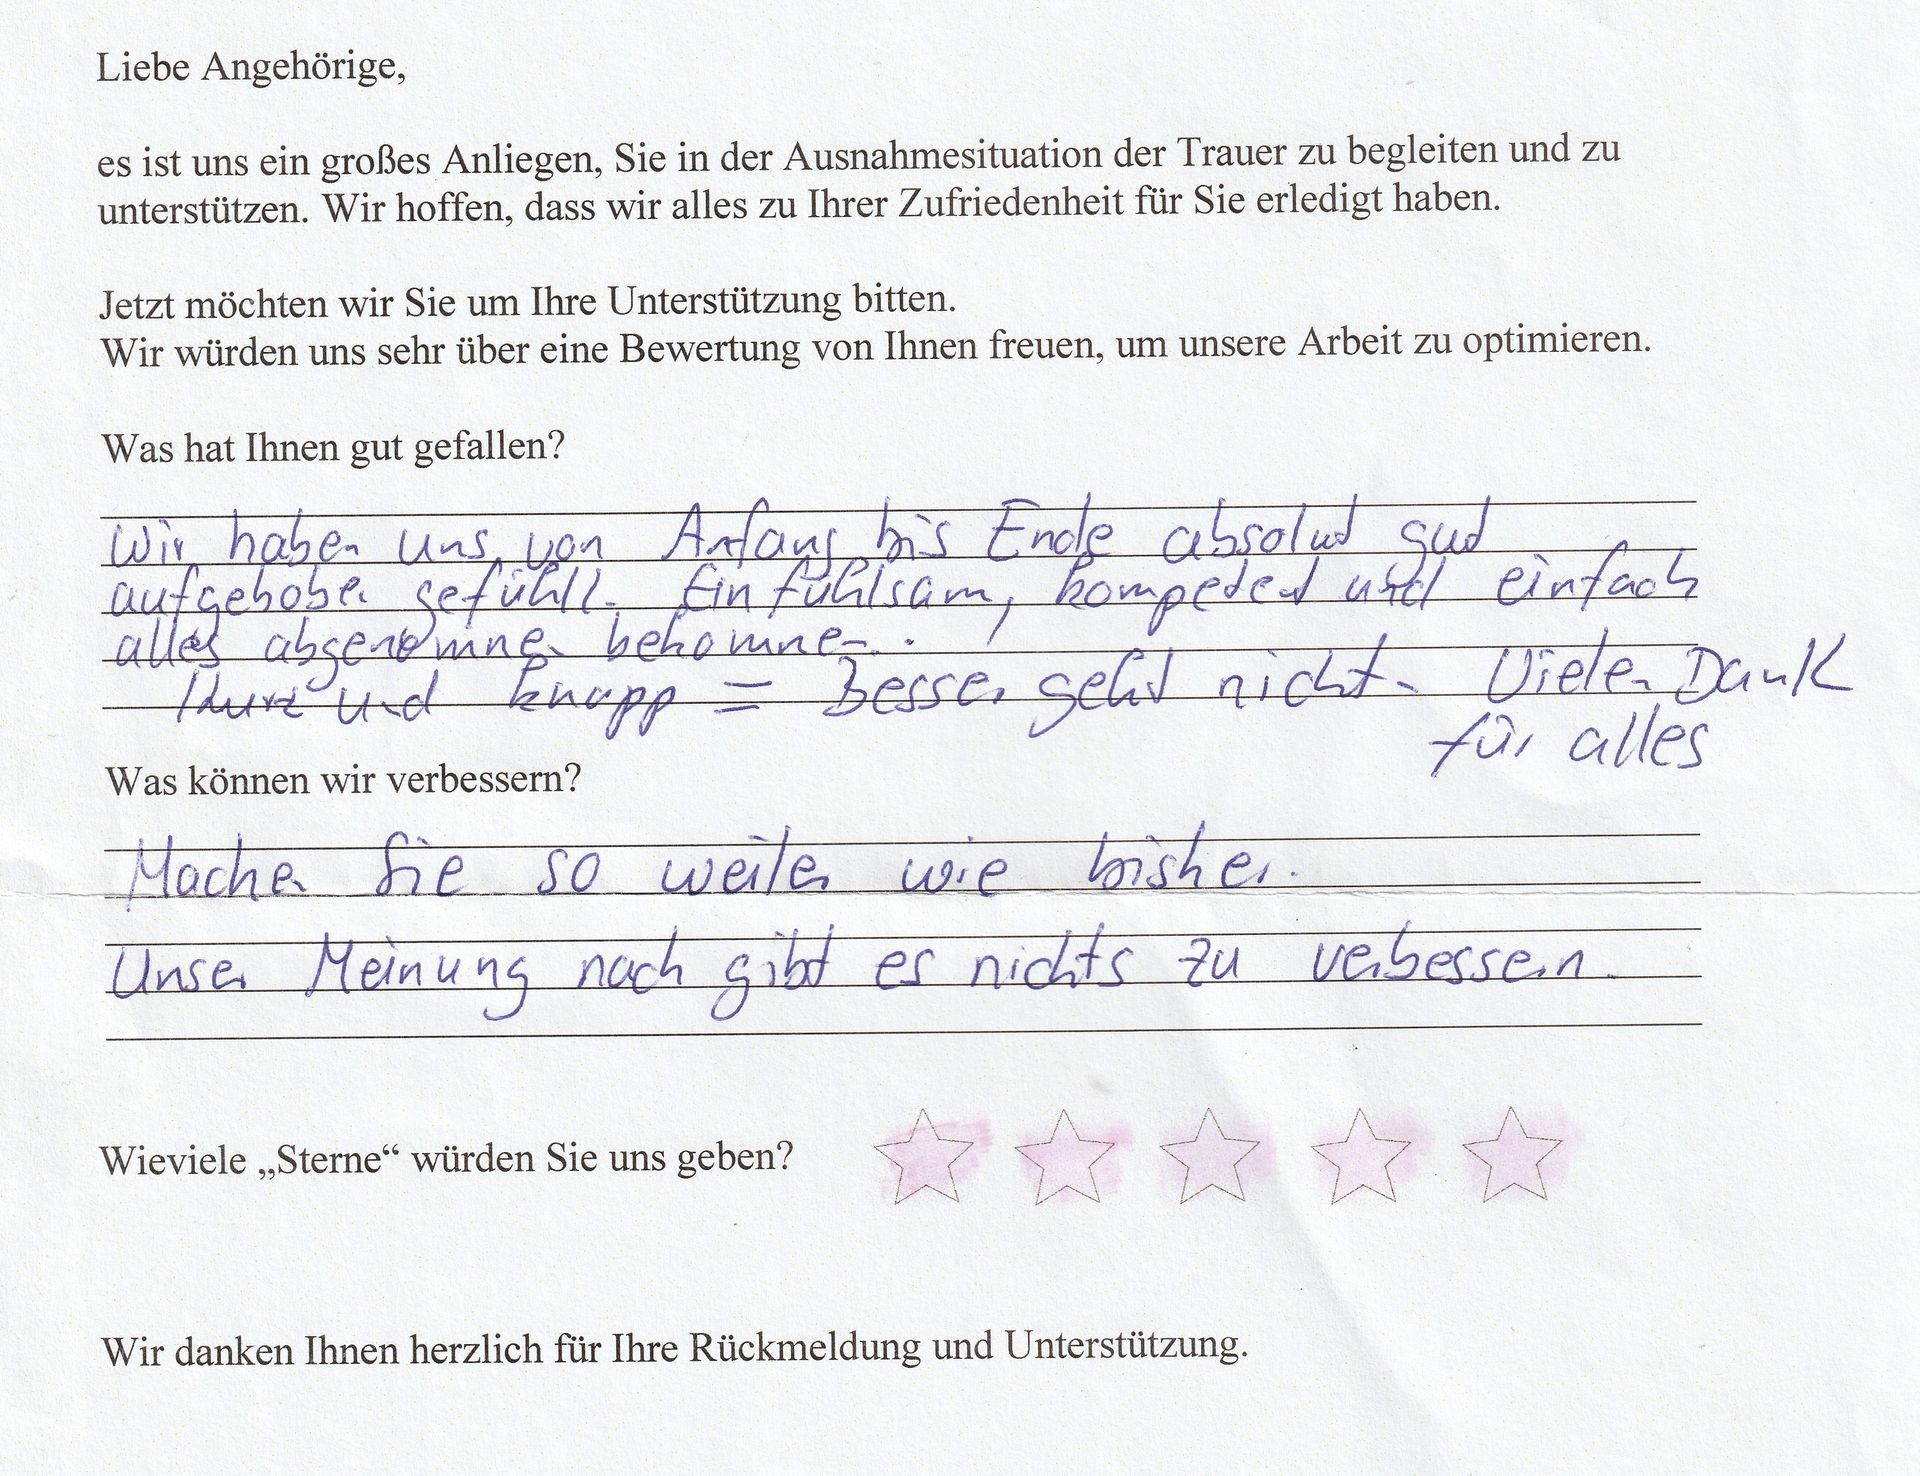 Liebe Angehörige,
es ist uns ein großes Anliegen, Sie in der Ausnahmesituation der Trauer zu begleiten und zu
unterstützen. Wir hoffen, dass wir alles zu Ihrer Zufriedenheit für Sie erledigt haben.
Jetzt möchten wir Sie um Ihre Unterstützung bitten.
Wir würden uns sehr über eine Bewertung von Ihnen freuen, um unsere Arbeit zu optimieren.
Was hat Ihnen gut gefallen?
Wir haben uns von Anfang bis Ende absolut gut
aufgehoben gefühlt. Einfühlsam, kompetent und einfach
alles abgenommen bekommen.
Kurz und knapp = Besser geht nicht. Vielen Dank
für alles
Was können wir verbessern?
Machen Sie so weiter wie bisher.
Unser Meinung nach gibt es nichts zu verbessern.
Wieviele „Sterne“ würden Sie uns geben?
Wir danken Ihnen herzlich für Ihre Rückmeldung und Unterstützung.